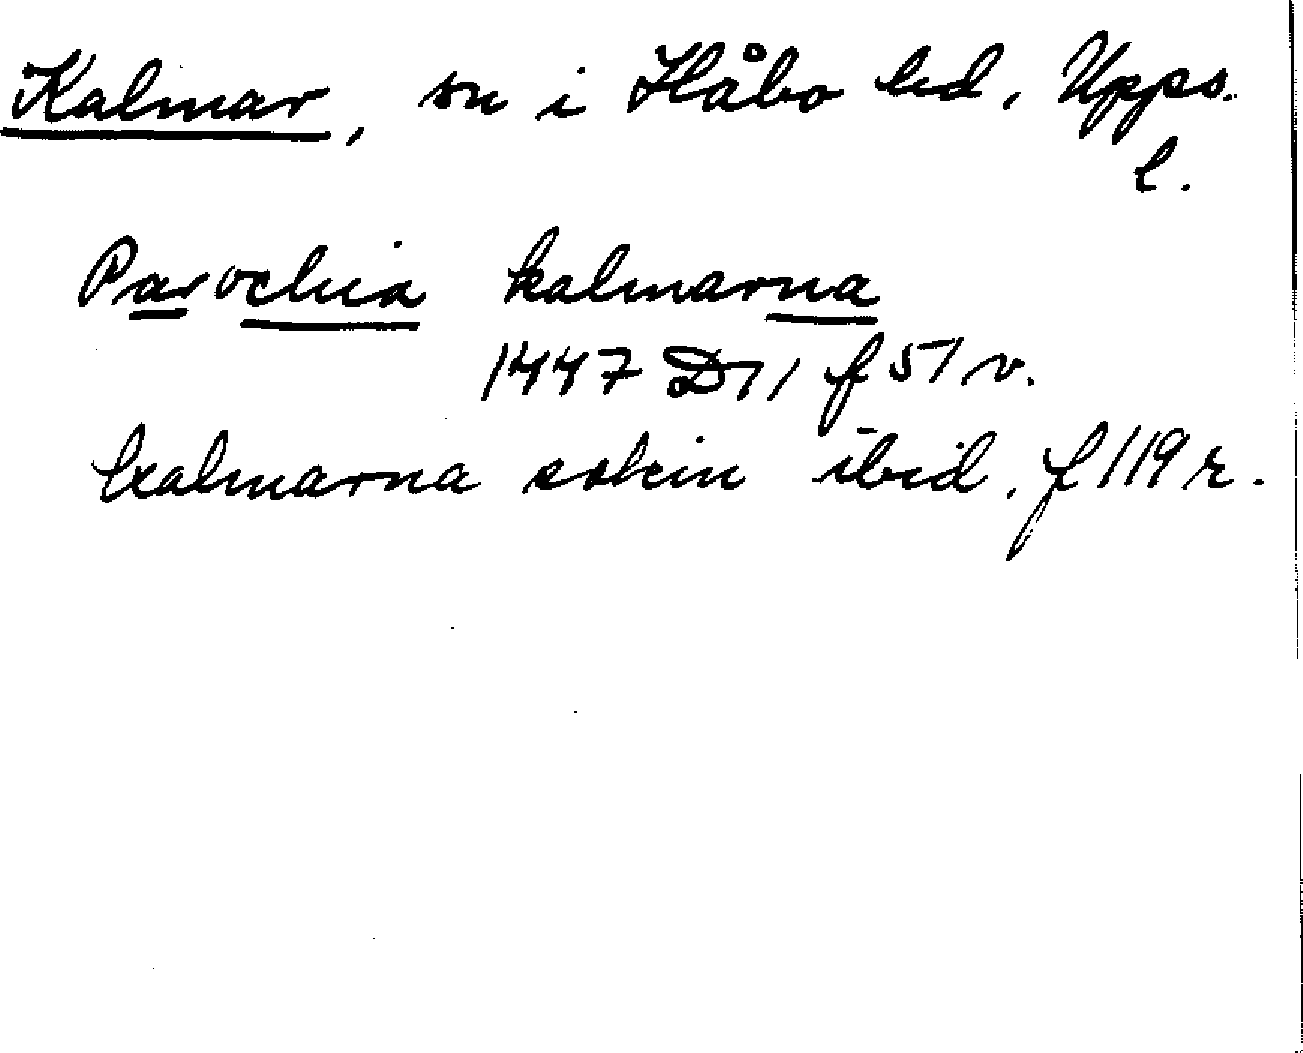 Kalmar, sn i Håbo hd, Upps.
l.
Parochia kalmarna
1447 D11 f 51 v.
kalmarna sokin ibid. f 119 r.